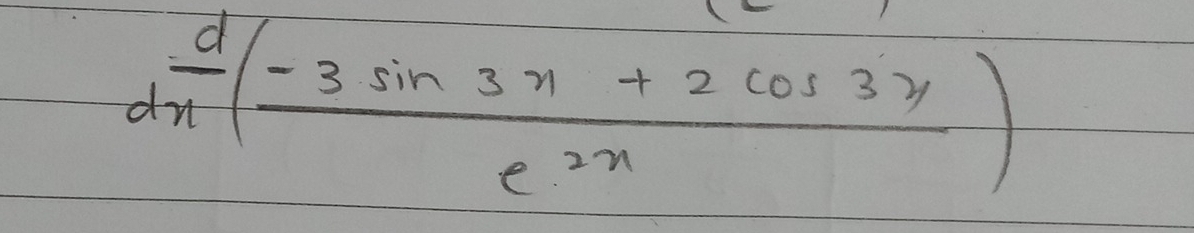 d/dx ( (-3 sin 3x + 2 cos 3x) / e^{2x} )